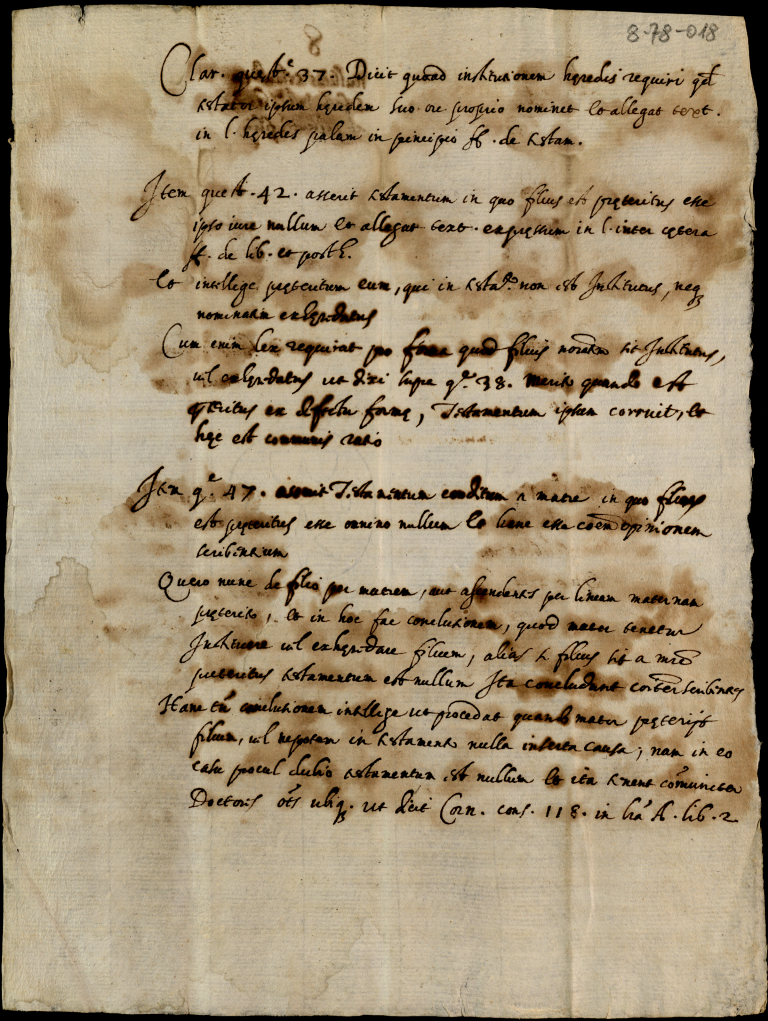 8-78-018
8
Clar. quest.e 37. Dicit quoad institutionem hęredis requiri qd
testator ipsum hęredem suo ore proprio nominet et allegat text.
in l. hęredes palam in principio ff. de testam.
Item quest. 42. asserit testamentum in quo filius est pręteritus esse
ipso iure nullum et allegat text. expressum in l. inter cętera
ff. de lib. et posth.
et intellige pręteritum eum, qui in testa.to non est Institutus, neq
nominatim exhęredatus
Cum enim lex requirat pro forma quod filius noiatim sit Institutus,
vel exhęredatus ut dixi supra q. 38. merito quando est
pteritus ex defectu formę, Testamentum ipsum corruit, et
hęc est communis ratio
Item q. 47. Testamentum conditum a matre in quo filius
est pręteritus esse omnino nullum et hanc esse coem opinionem
scribentium
Quero nunc de filio per matrem, aut ascendentes per lineam maternam
pręterito, et in hoc fac conclusionem, quod mater tenetur
Instituere vel exhęredare filium, alias si filius sit a mre
pręteritus testamentum est nullum Ita concludunt coiter scribentes
Hanc tn conclusionem intellige ut procedat quando mater pręterijt
filium, vel nepotem in testamento nulla inserta causa, nam in eo
casu procul dubio testamentum est nullum et ita tenent comuniter
Doctores oes ubiq. ut dicit Corn. cons. 118. in lra A. lib. 2